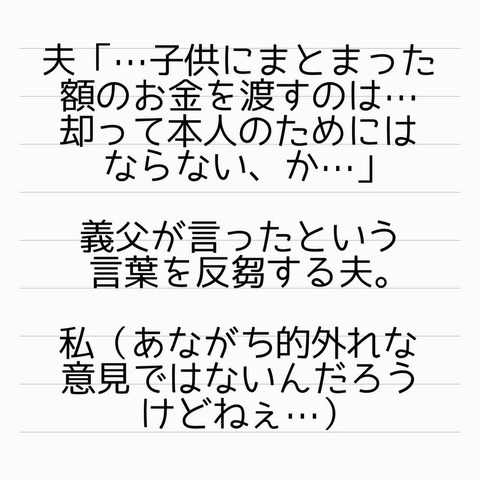 夫「…子供にまとまった
額のお金を渡すのは…
却って本人のためには
ならない、か…」
義父が言ったという
言葉を反芻する夫。
私（あながち的外れな
意見ではないんだろう
けどねぇ…）